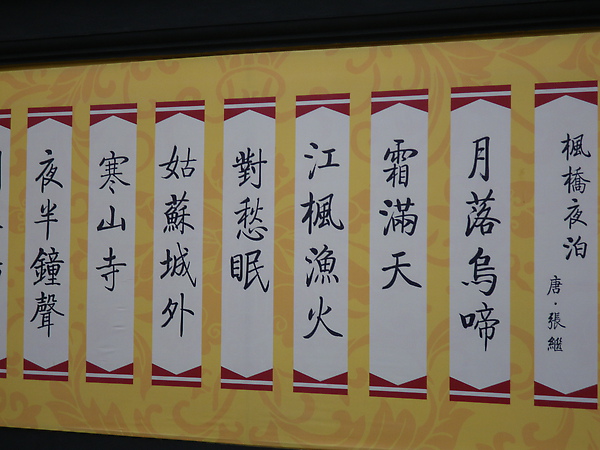 楓橋夜泊
唐·張繼
月落烏啼
霜滿天
江楓漁火
對愁眠
姑蘇城外
寒山寺
夜半鐘聲